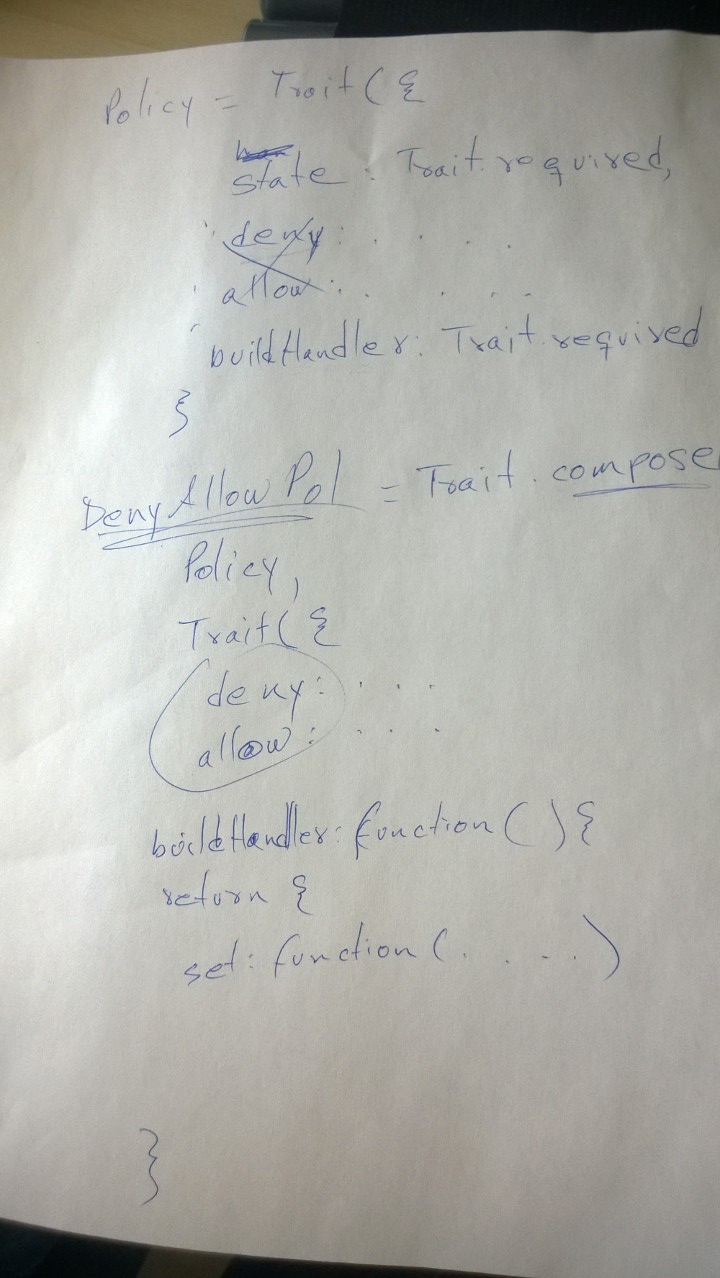 Policy = Trait({
state : Trait.required,
deny : . . . .
allow : . . . .
buildHandler : Trait.required
}
DenyAllowPol = Trait.compose
Policy,
Trait({
deny : . . .
allow : . . .
buildHandler : function(){
return {
set : function(. . . . .)
}